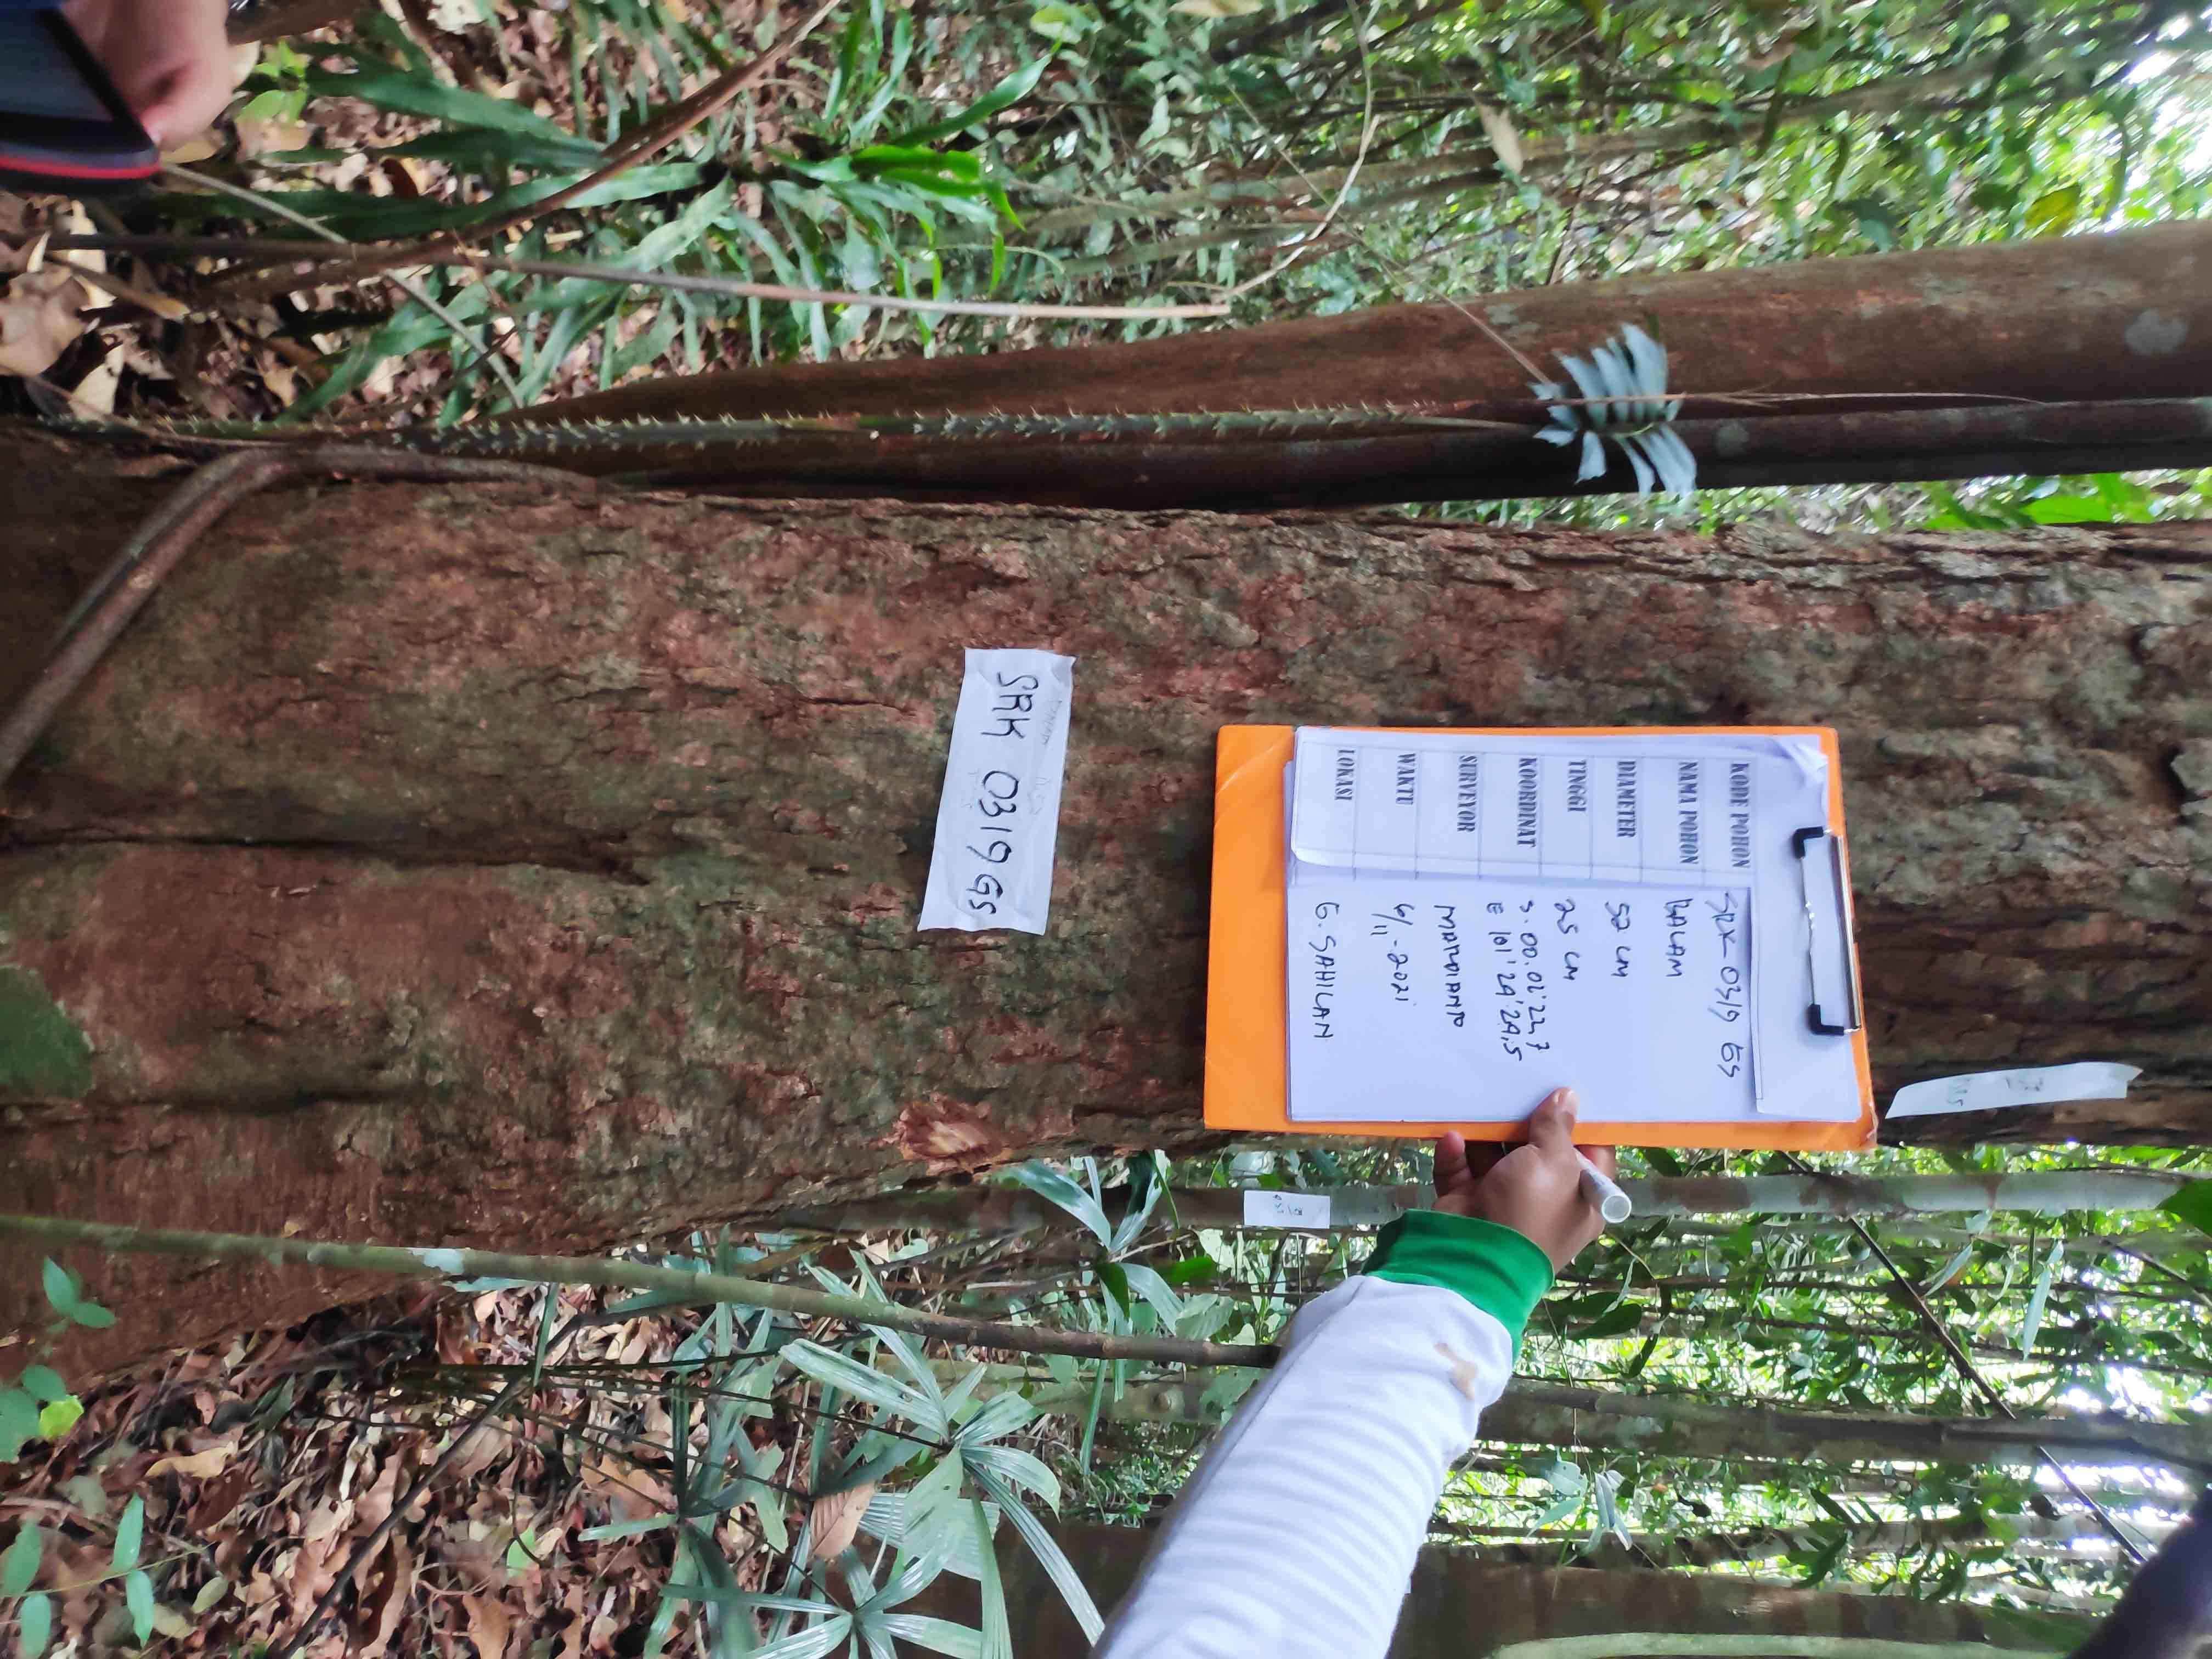 KODE POHON SRK 0319 GS
NAMA POHON BALAM
DIAMETER 52 CM
TINGGI 25 CM
KOORDINAT S. 00. 02' 22,7
E 101' 24' 24,5
SURVEYOR MARDIANTO
WAKTU 6/11-2021
LOKASI G. SAHILAN
SRK 0319 GS